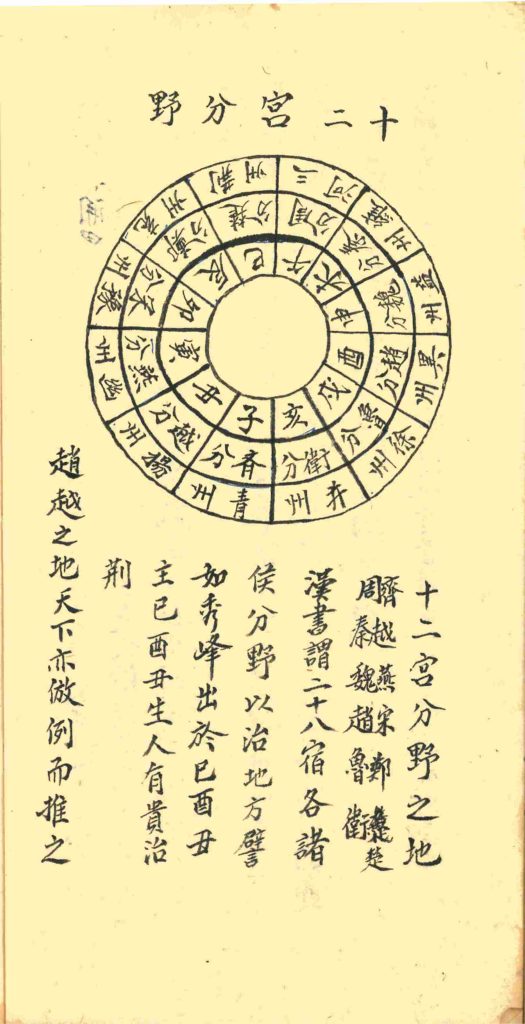 十二宮分野
子 齊分 青州
丑 越分 揚州
寅 燕分 幽州
卯 宋分 豫州
辰 鄭分 兗州
巳 楚分 荆州
午 周分 三河
未 秦分 雍州
申 魏分 益州
酉 趙分 冀州
戌 魯分 徐州
亥 衛分 并州
十二宮分野之地
齊越燕宋鄭楚
周秦魏趙魯衛
漢書謂二十八宿各諸
侯分野以治地方譬
如秀峰出於巳酉丑
主巳酉丑生人有貴治
荆
趙越之地天下亦倣例而推之